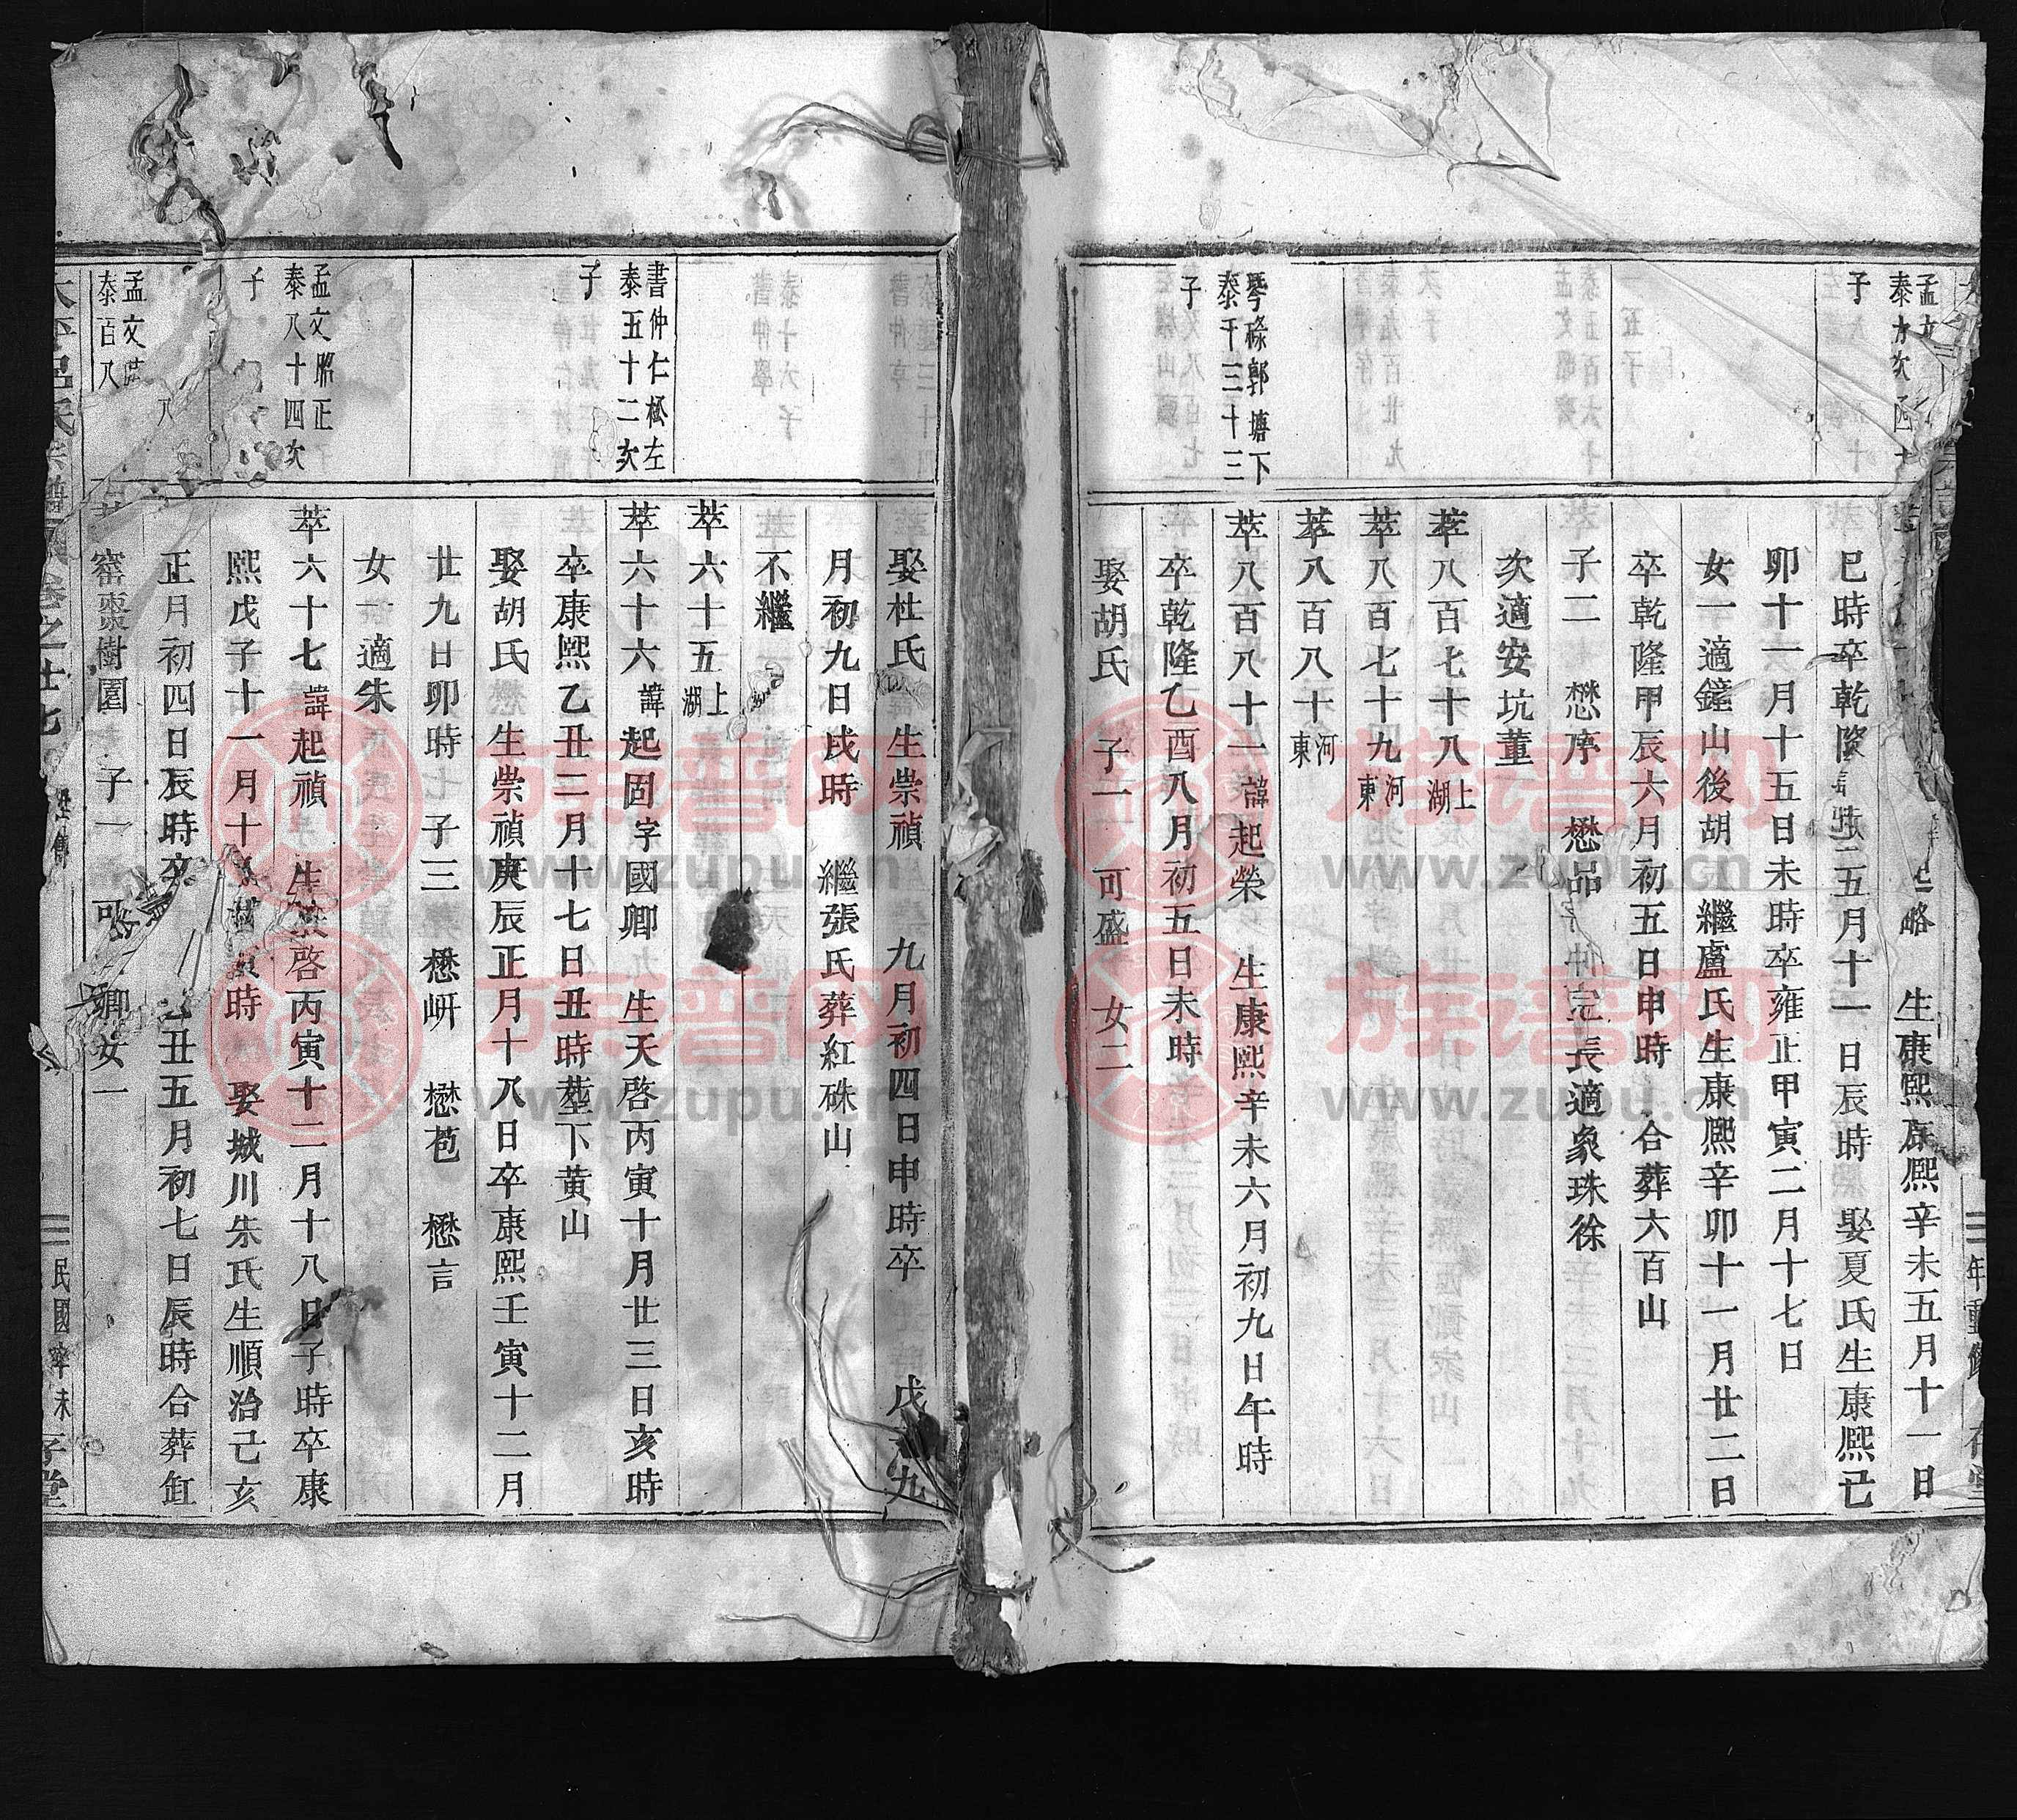 孟文
泰
次
子
生康熙康熙辛未五月十一日
巳時卒乾隆五月十一日辰時 娶夏氏生康熙己
卯十一月十五日未時卒雍正甲寅二月十七日
女一適鐘山後胡 繼盧氏生康熙辛卯十一月廿二日
卒乾隆甲辰六月初五日申時 合葬六百山
子二 懋序 懋品字仲完長適象珠徐
次適安坑董
萃八百七十八上湖
萃八百七十九河東
萃八百八十河東
琴碌郭塘下
泰千三十三
子
萃八百八十一諱起榮 生康熙辛未六月初九日午時
卒乾隆乙酉八月初五日未時
娶胡氏 子一 可盛 女二
年重修
娶杜氏 生崇禎 九月初四日申時卒 戊九
月初九日戌時 繼張氏葬紅硃山
不繼
萃六十五上湖
書仲仁松左
泰五十二次
子
萃六十六諱起固字國卿 生天啓丙寅十月廿三日亥時
卒康熙乙丑二月十七日丑時塟下黄山
娶胡氏 生崇禎庚辰正月十八日卒康熙壬寅十二月
廿九日卯時 子三 懋岍 懋苞 懋言
女一適朱
孟文照正
泰八十四次
子
萃六十七諱起禎 生 啓丙寅十二月十八日子時卒康
熙戊子十一月十 寅時 娶城川朱氏生順治己亥
正月初四日辰時卒 丑五月初七日辰時合葬缸
孟文
泰百八
窰棗樹園 子一 可 卿 女一
太平呂氏宗譜 卷之廿七
民國辛未
堂